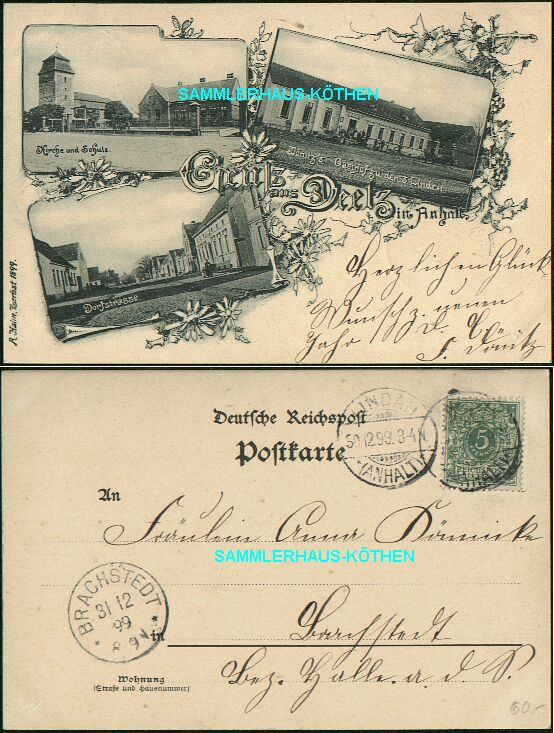 SAMMLERHAUS-KÖTHEN
Kirche und Schule.
Gasthof zu den 3 Linden.
Gruß aus Deetz in Anhalt.
Dorfstrasse
A. Halm, Zerbst 1899.
Herzlichen Glück
Wunsch z. neuen
Jahr
Deutsche Reichspost
Postkarte
LINDAU
30.12.99. 3-4N.
(ANHALT)
5
An
Fräulein Anna Könnicke
SAMMLERHAUS-KÖTHEN
BRACHSTEDT
31 12
99
in Brachstedt
Bez. Halle a. d. S.
Wohnung
(Straße und Hausnummer)
60.-